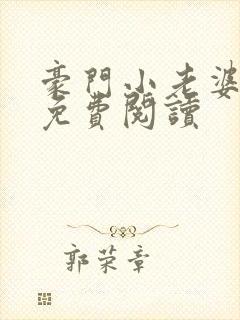 豪門小老婆
免費閱讀
郭荣章